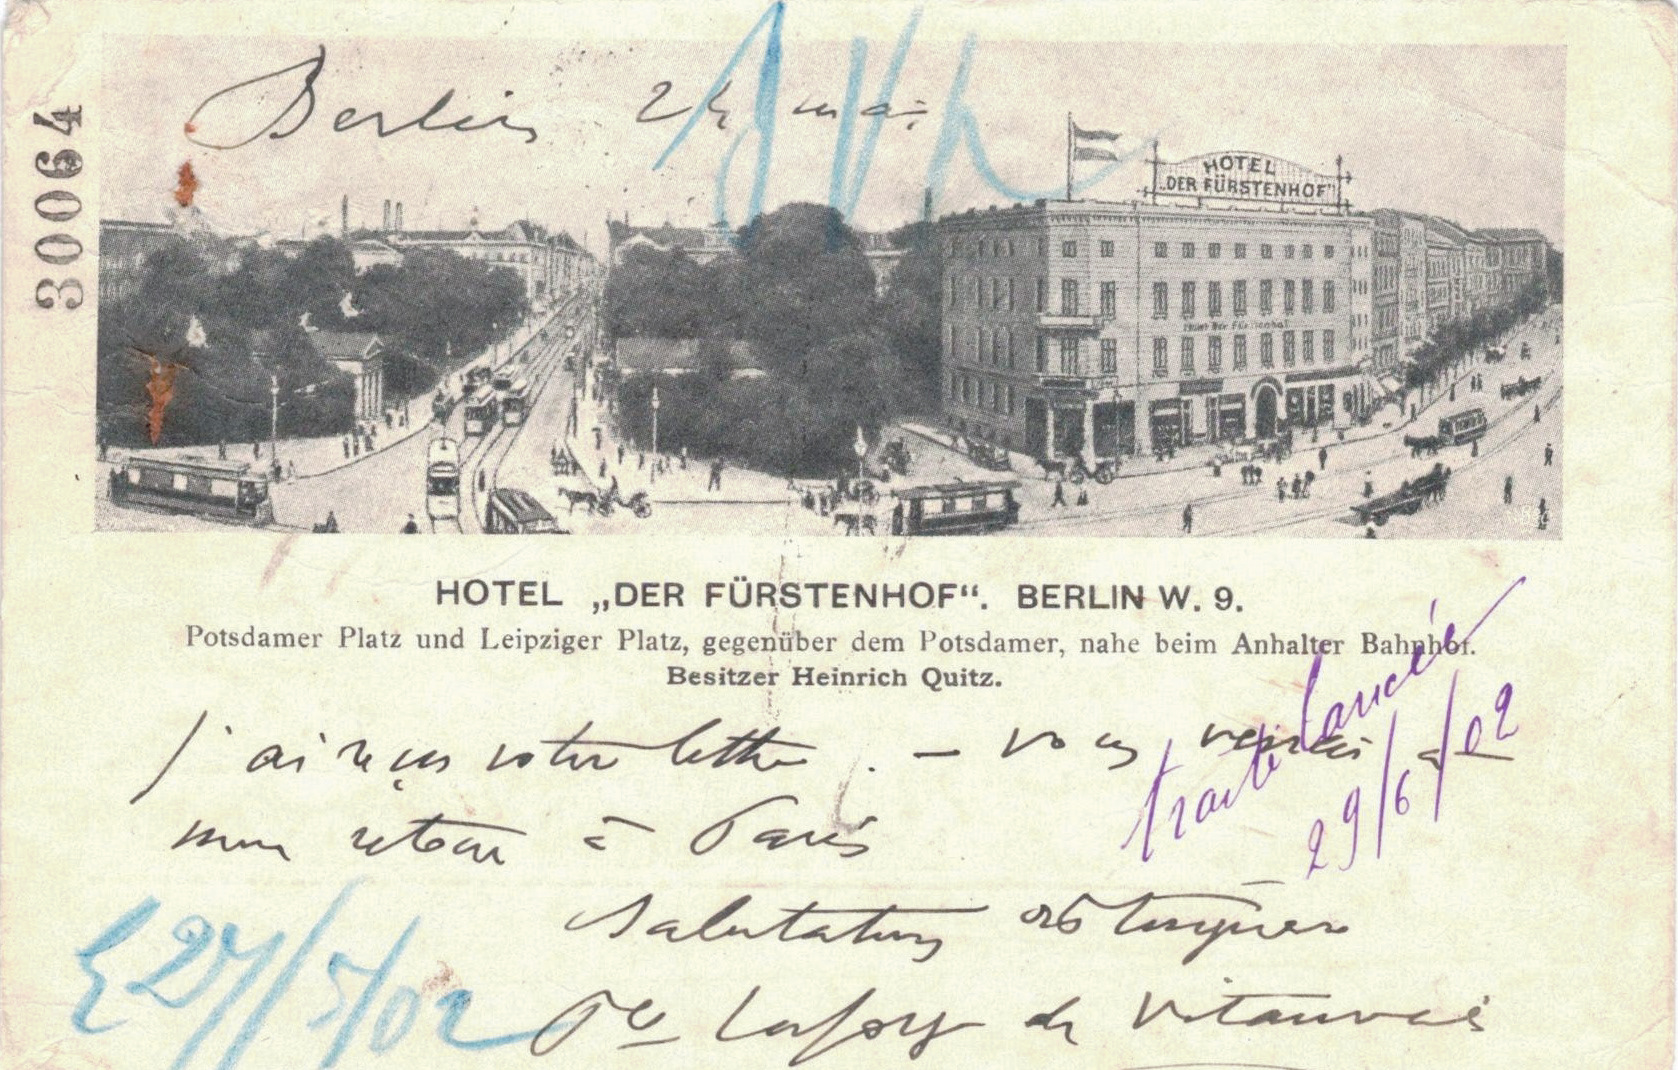 30064
Berlin 24 mai
HOTEL
„DER FÜRSTENHOF“
HOTEL „DER FÜRSTENHOF“. BERLIN W. 9.
Potsdamer Platz und Leipziger Platz, gegenüber dem Potsdamer, nahe beim Anhalter Bahnhof.
Besitzer Heinrich Quitz.
j'ai reçu votre lettre. – vous verrai à
mon retour à Paris
29/6/02
Salutations
27/5/02
de